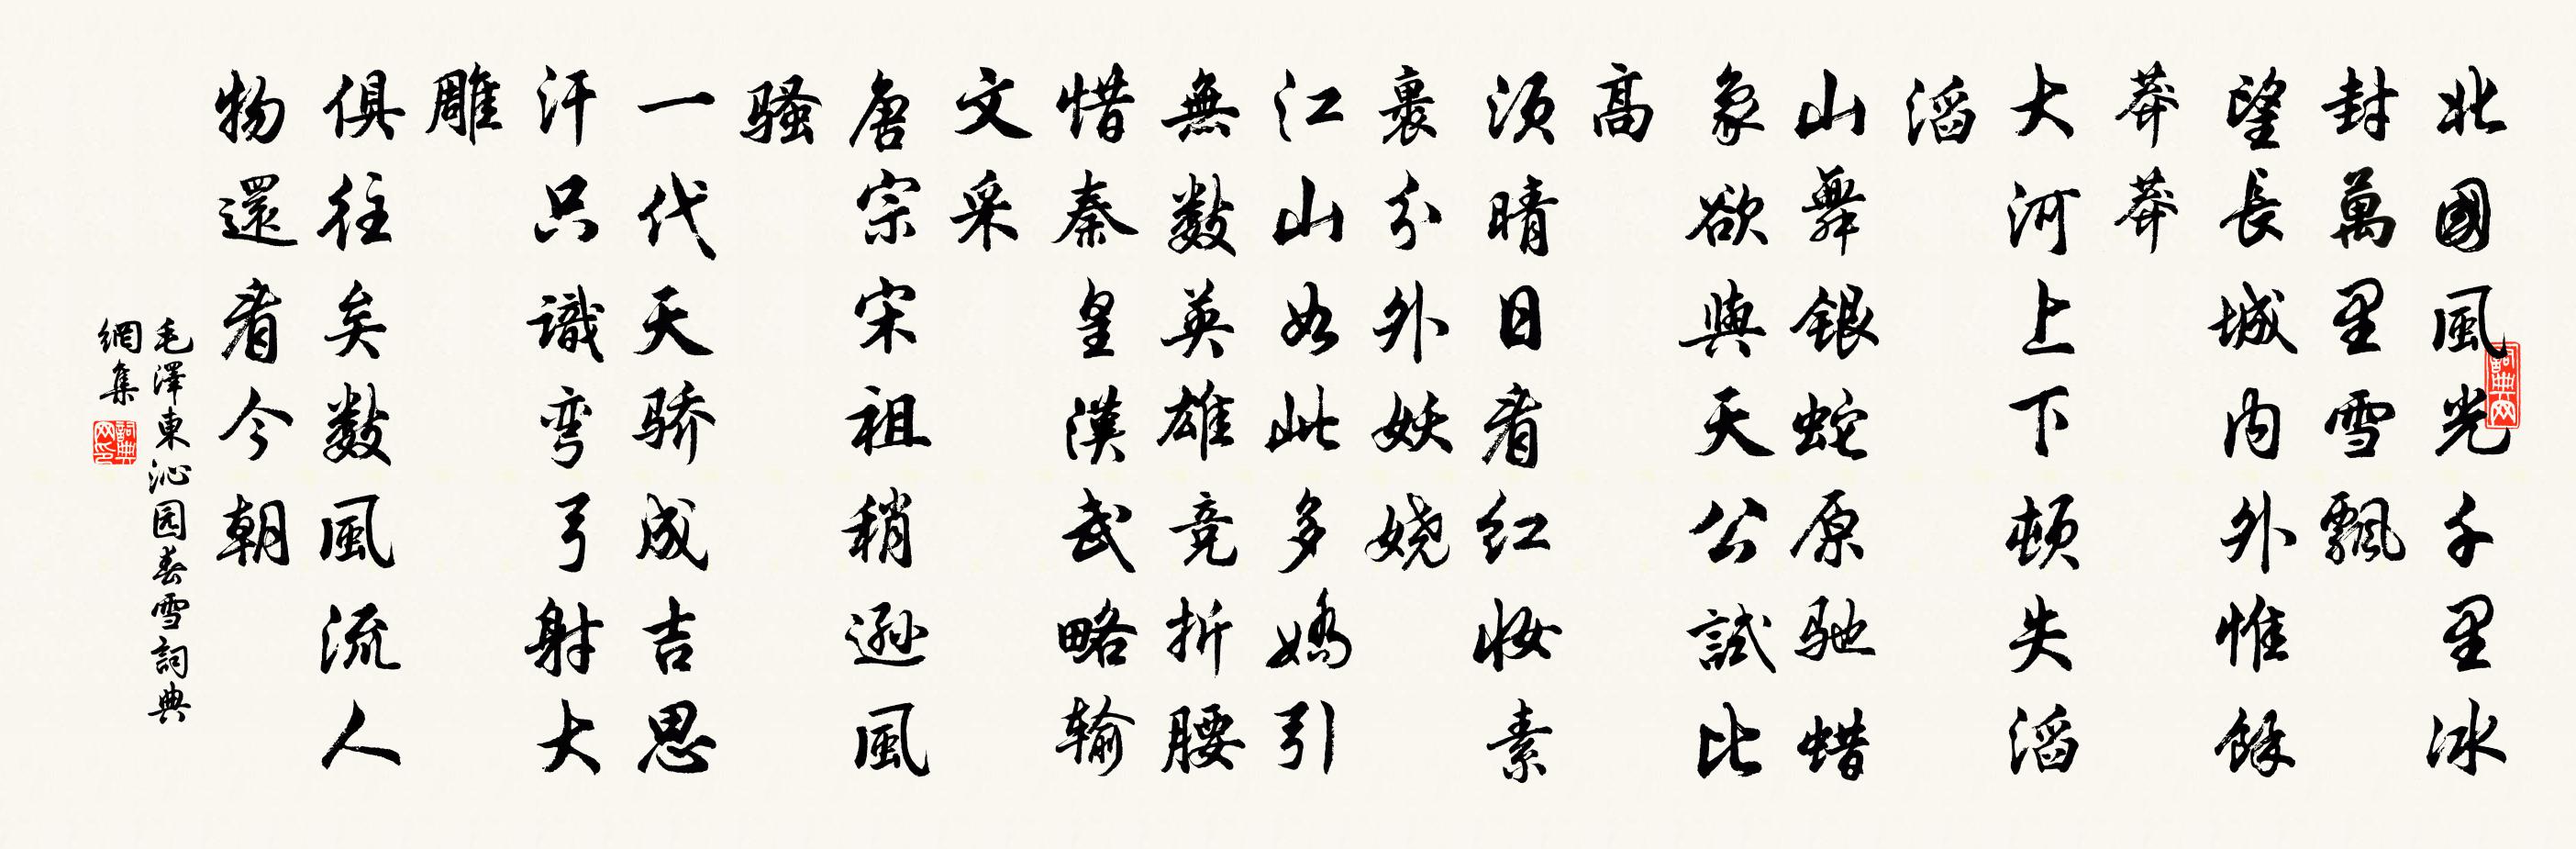 北國風光千里冰
封萬里雪飄
望長城内外惟餘
莽莽
大河上下頓失滔
滔
山舞銀蛇原驰蜡
象欲與天公試比
高
須晴日看红妝素
裹分外妖娆
江山如此多嬌引
無数英雄竞折腰
惜秦皇漢武略输
文采
唐宗宋祖稍逊風
骚
一代天骄成吉思
汗只識弯弓射大
雕
俱往矣数風流人
物還看今朝
毛澤東沁园春雪詞典
網集
詞典网
詞典网印